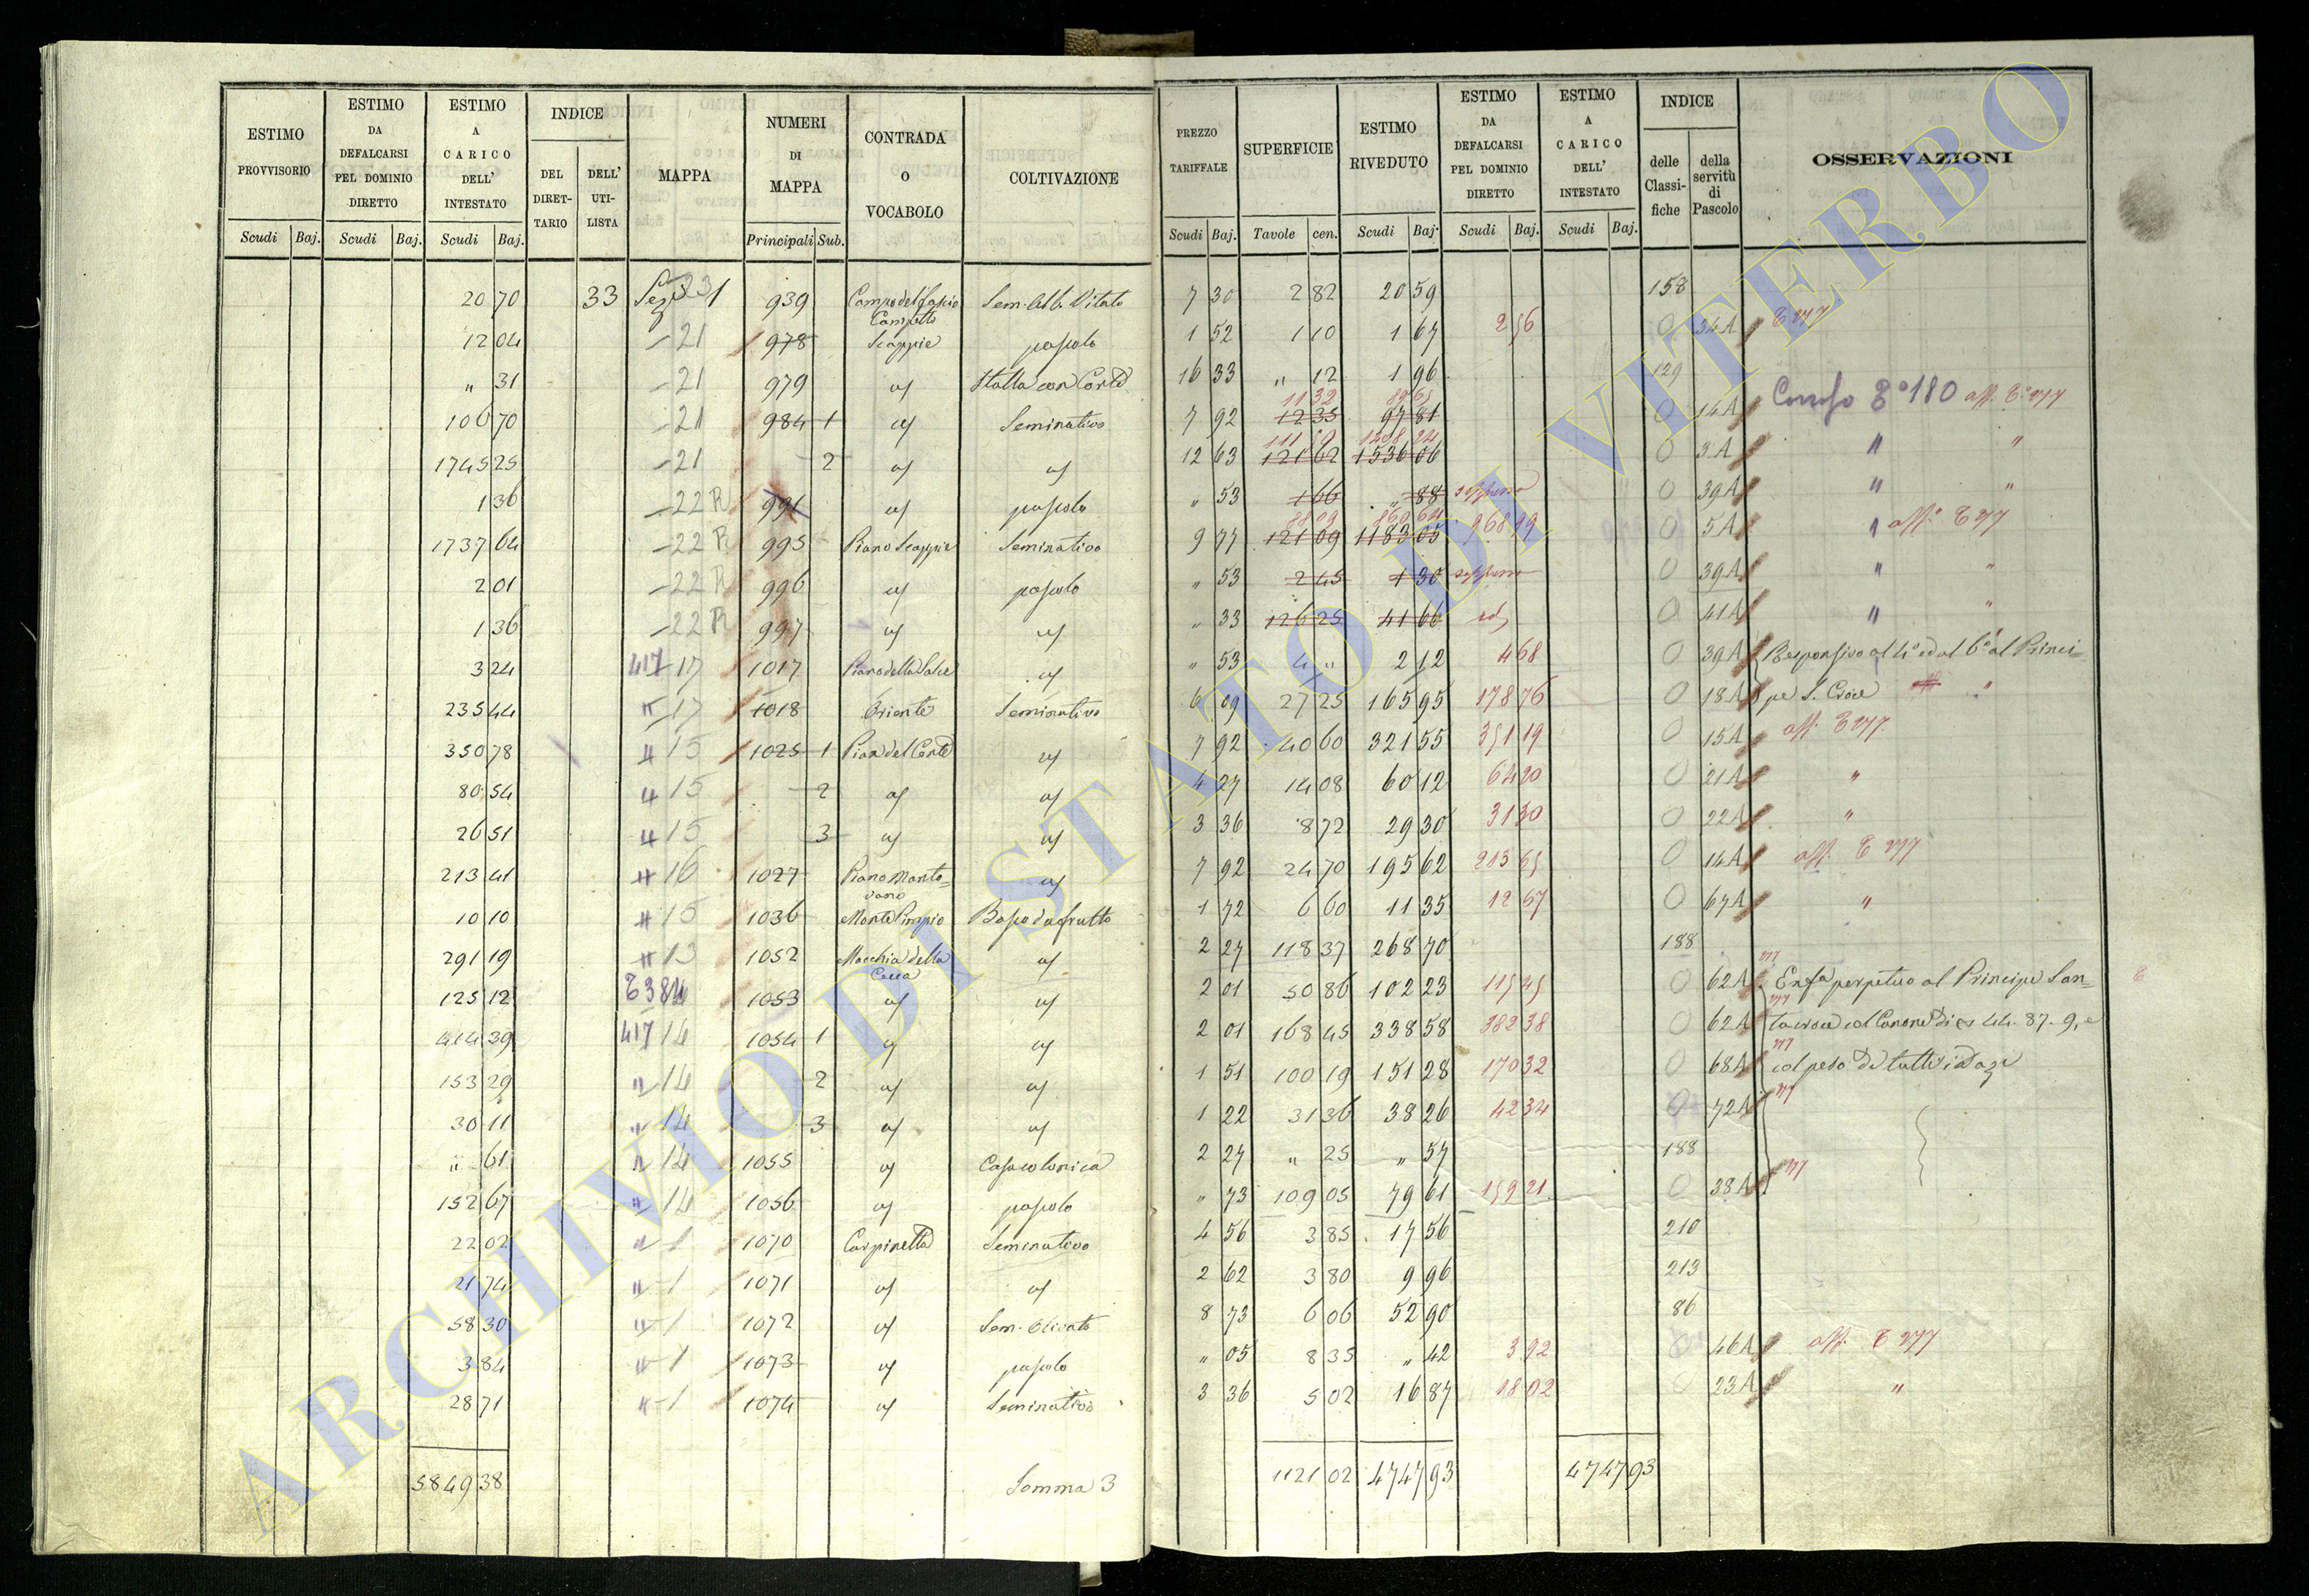 ESTIMO PROVVISORIO | ESTIMO DA DEFALCARSI PEL DOMINIO DIRETTO | ESTIMO A CARICO DELL' INTESTATO | INDICE DEL DIRETTARIO | DELL' UTILISTA | MAPPA | NUMERI DI MAPPA | CONTRADA O VOCABOLO | COLTIVAZIONE | PREZZO TARIFFALE | SUPERFICIE | ESTIMO RIVEDUTO | ESTIMO DA DEFALCARSI PEL DOMINIO DIRETTO | ESTIMO A CARICO DELL' INTESTATO | INDICE delle Classifiche | della servitù di Pascolo | OSSERVAZIONI
Scudi Baj. | Scudi Baj. | Scudi Baj. | Principali Sub. | Scudi Baj. | Tavole cen. | Scudi Baj. | Scudi Baj. | Scudi Baj.
20 70 | 33 | Sez. 1 | 939 | Campo del | Sem. Alb. Vitato | 7 30 | 2 82 | 20 59 | 158
12 04 | 21 | 978 | Campetto Scappie | pascolo | 1 52 | 1 10 | 1 67 | 2 56 | 0 | 34A | E 277
" 31 | 21 | 979 | id | Stalla con Corte | 16 33 | " 12 | 1 96 | 129
106 70 | 21 | 984 1 | id | Seminativo | 7 92 | 12 35 | 11 32 | 97 81 | 89 65 | 0 | 14A | 180 aff. E 277
1745 25 | 21 | 2 | id | id | 12 63 | 121 62 | 1536 06 | 0 | 3A | " "
1 36 | 22 R | 991 | id | pascolo | " 53 | 1 66 | " 88 | soppresso | 0 | 39A | " "
1737 64 | 22 R | 995 | Piano Scappie | Seminativo | 9 77 | 121 09 | 1183 05 | 0 | 5A | " aff. E 277
2 01 | 22 R | 996 | id | pascolo | " 53 | 2 45 | 1 30 | soppresso | 0 | 39A | " "
1 36 | 22 R | 997 | id | id | " 33 | 126 25 | 41 66 | id | 0 | 41A | " "
3 24 | 417 17 | 1017 | Piano della | id | " 53 | 4 " | 2 12 | 4 68 | 0 | 39A | Responsivo al 4° ed al 6° al Princi=
235 44 | " 17 | 1018 | Oriente | Seminativo | 6 09 | 27 25 | 165 95 | 178 76 | 0 | 18A | pe S. Croce "
350 78 | " 15 | 1025 1 | Pian del Conte | id | 7 92 | 40 60 | 321 55 | 351 19 | 0 | 15A | aff. E 277
80 54 | " 15 | 2 | id | id | 4 27 | 14 08 | 60 12 | 64 20 | 0 | 21A | "
26 51 | " 15 | 3 | id | id | 3 36 | 8 72 | 29 30 | 31 30 | 0 | 22A | "
213 41 | " 16 | 1027 | Piano Monto=vano | id | 7 92 | 24 70 | 195 62 | 213 65 | 0 | 14A | aff. E 277
10 10 | " 15 | 1036 | Monte | Bosco da frutto | 1 72 | 6 60 | 11 35 | 12 67 | 0 | 67A | "
291 19 | " 13 | 1052 | Macchia della | id | 2 27 | 118 37 | 268 70 | 188
125 12 | 1053 | id | id | 2 01 | 50 86 | 102 23 | 115 45 | 0 | 62A | Enfa perpetuo al Principe San=
414 39 | 417 14 | 1054 1 | id | id | 2 01 | 168 45 | 338 58 | 382 38 | 0 | 62A | tacroce col Canone di 44. 87. 9, e
153 29 | " 14 | 2 | id | id | 1 51 | 100 19 | 151 28 | 170 32 | 0 | 68A | col peso di tutti i dazi
30 11 | " 14 | 3 | id | id | 1 22 | 31 36 | 38 26 | 42 34 | 0 | 72A
" 61 | " 14 | 1055 | id | Casa colonica | 2 27 | " 25 | " 57 | 188
152 67 | " 14 | 1056 | id | pascolo | " 73 | 109 05 | 79 61 | 159 21 | 0 | 38A
22 02 | " 1 | 1070 | Carpinetta | Seminativo | 4 56 | 3 85 | 17 56 | 210
21 74 | " 1 | 1071 | id | id | 2 62 | 3 80 | 9 96 | 213
58 30 | " 1 | 1072 | id | Sem. Olivato | 8 73 | 6 06 | 52 90 | 86
3 84 | " 1 | 1073 | id | pascolo | " 05 | 8 35 | " 42 | 3 92 | 0 | 46A | aff. E 277
28 71 | " 1 | 1074 | id | Seminativo | 3 36 | 5 02 | 16 87 | 18 02 | 0 | 23A | "
5849 38 | Somma 3 | 1121 02 | 4747 93 | 4747 93
ARCHIVIO DI STATO DI VITERBO